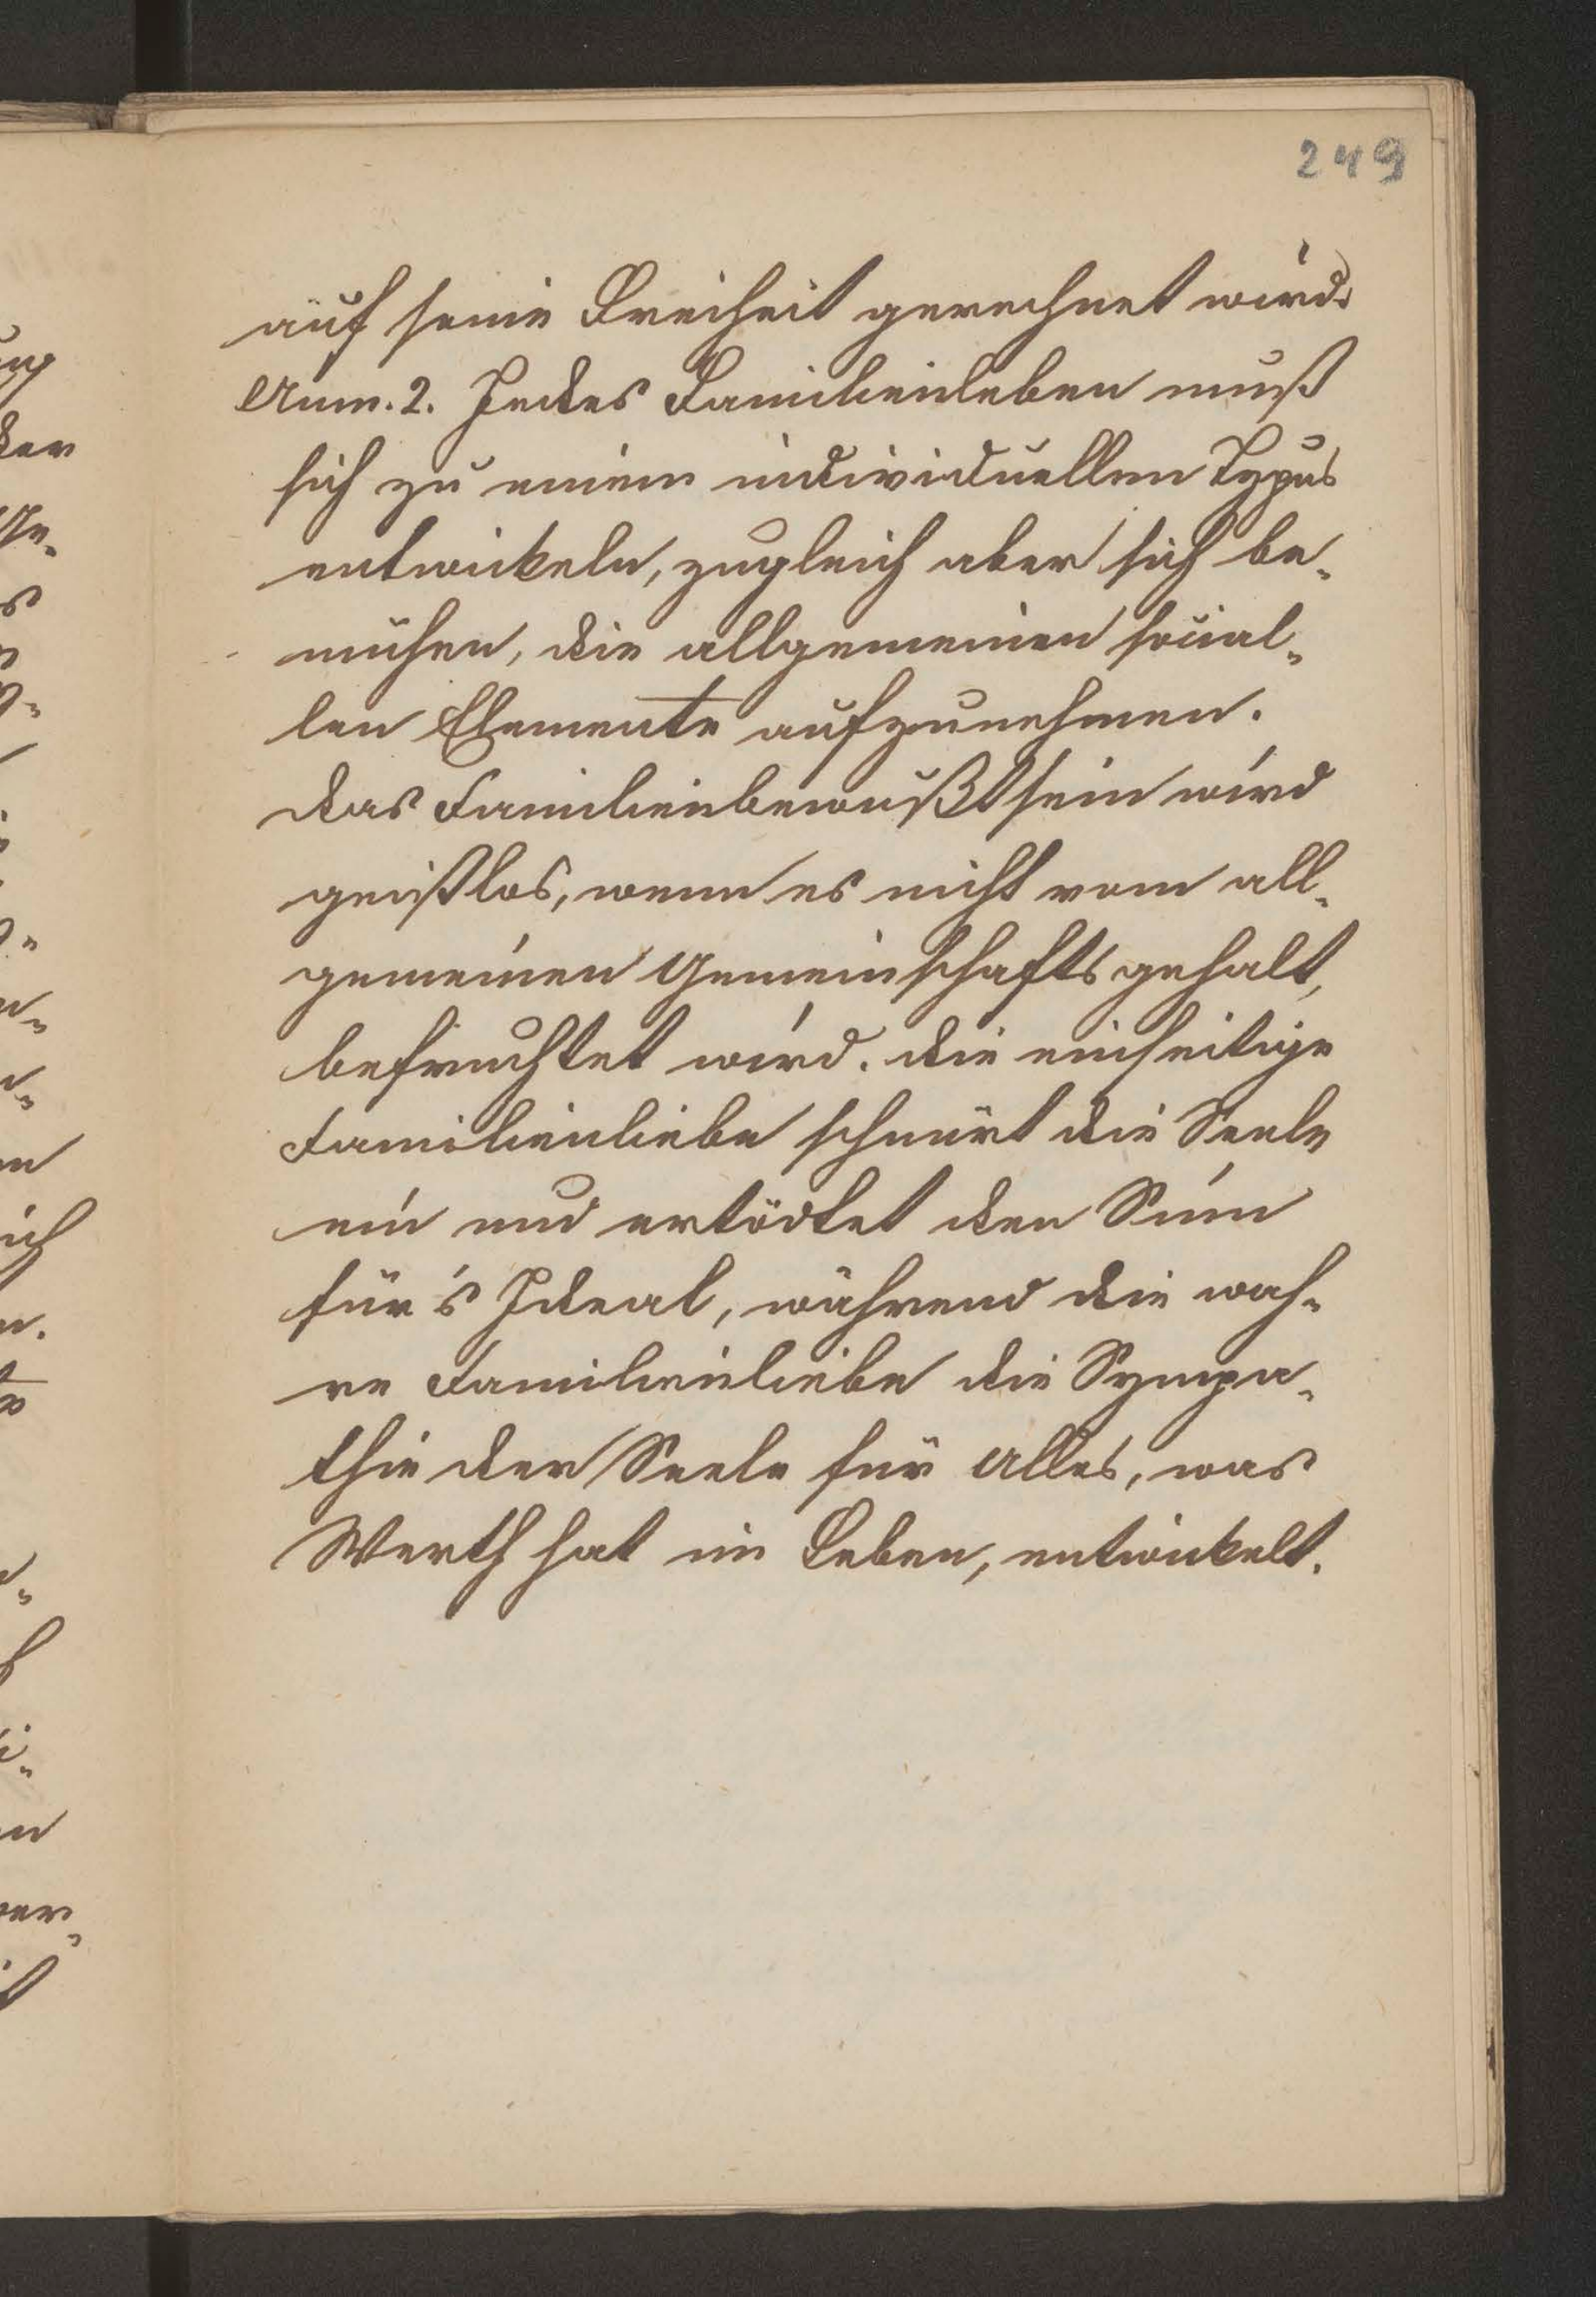 249
auf seine Freiheit gerechnet wird.
Anm. 2. Jedes Familienleben muß
sich zu einem individuellen Typus
entwickeln, zugleich aber sich be-
mühen, die allgemeinen social-
len Elemente aufzunehmen.
Das Familienbewußtsein wird
geistlos, wenn es nicht vom all-
gemeinen Gemeinschaftsgehalt,
befruchtet wird. Die einseitige
Familienliebe schnürt die Seele
ein und ertödtet den Sinn
für's Ideal, während die wah-
re Familienliebe die Sympa-
thie der Seele für Alles, was
Werth hat im Leben, entwickelt.